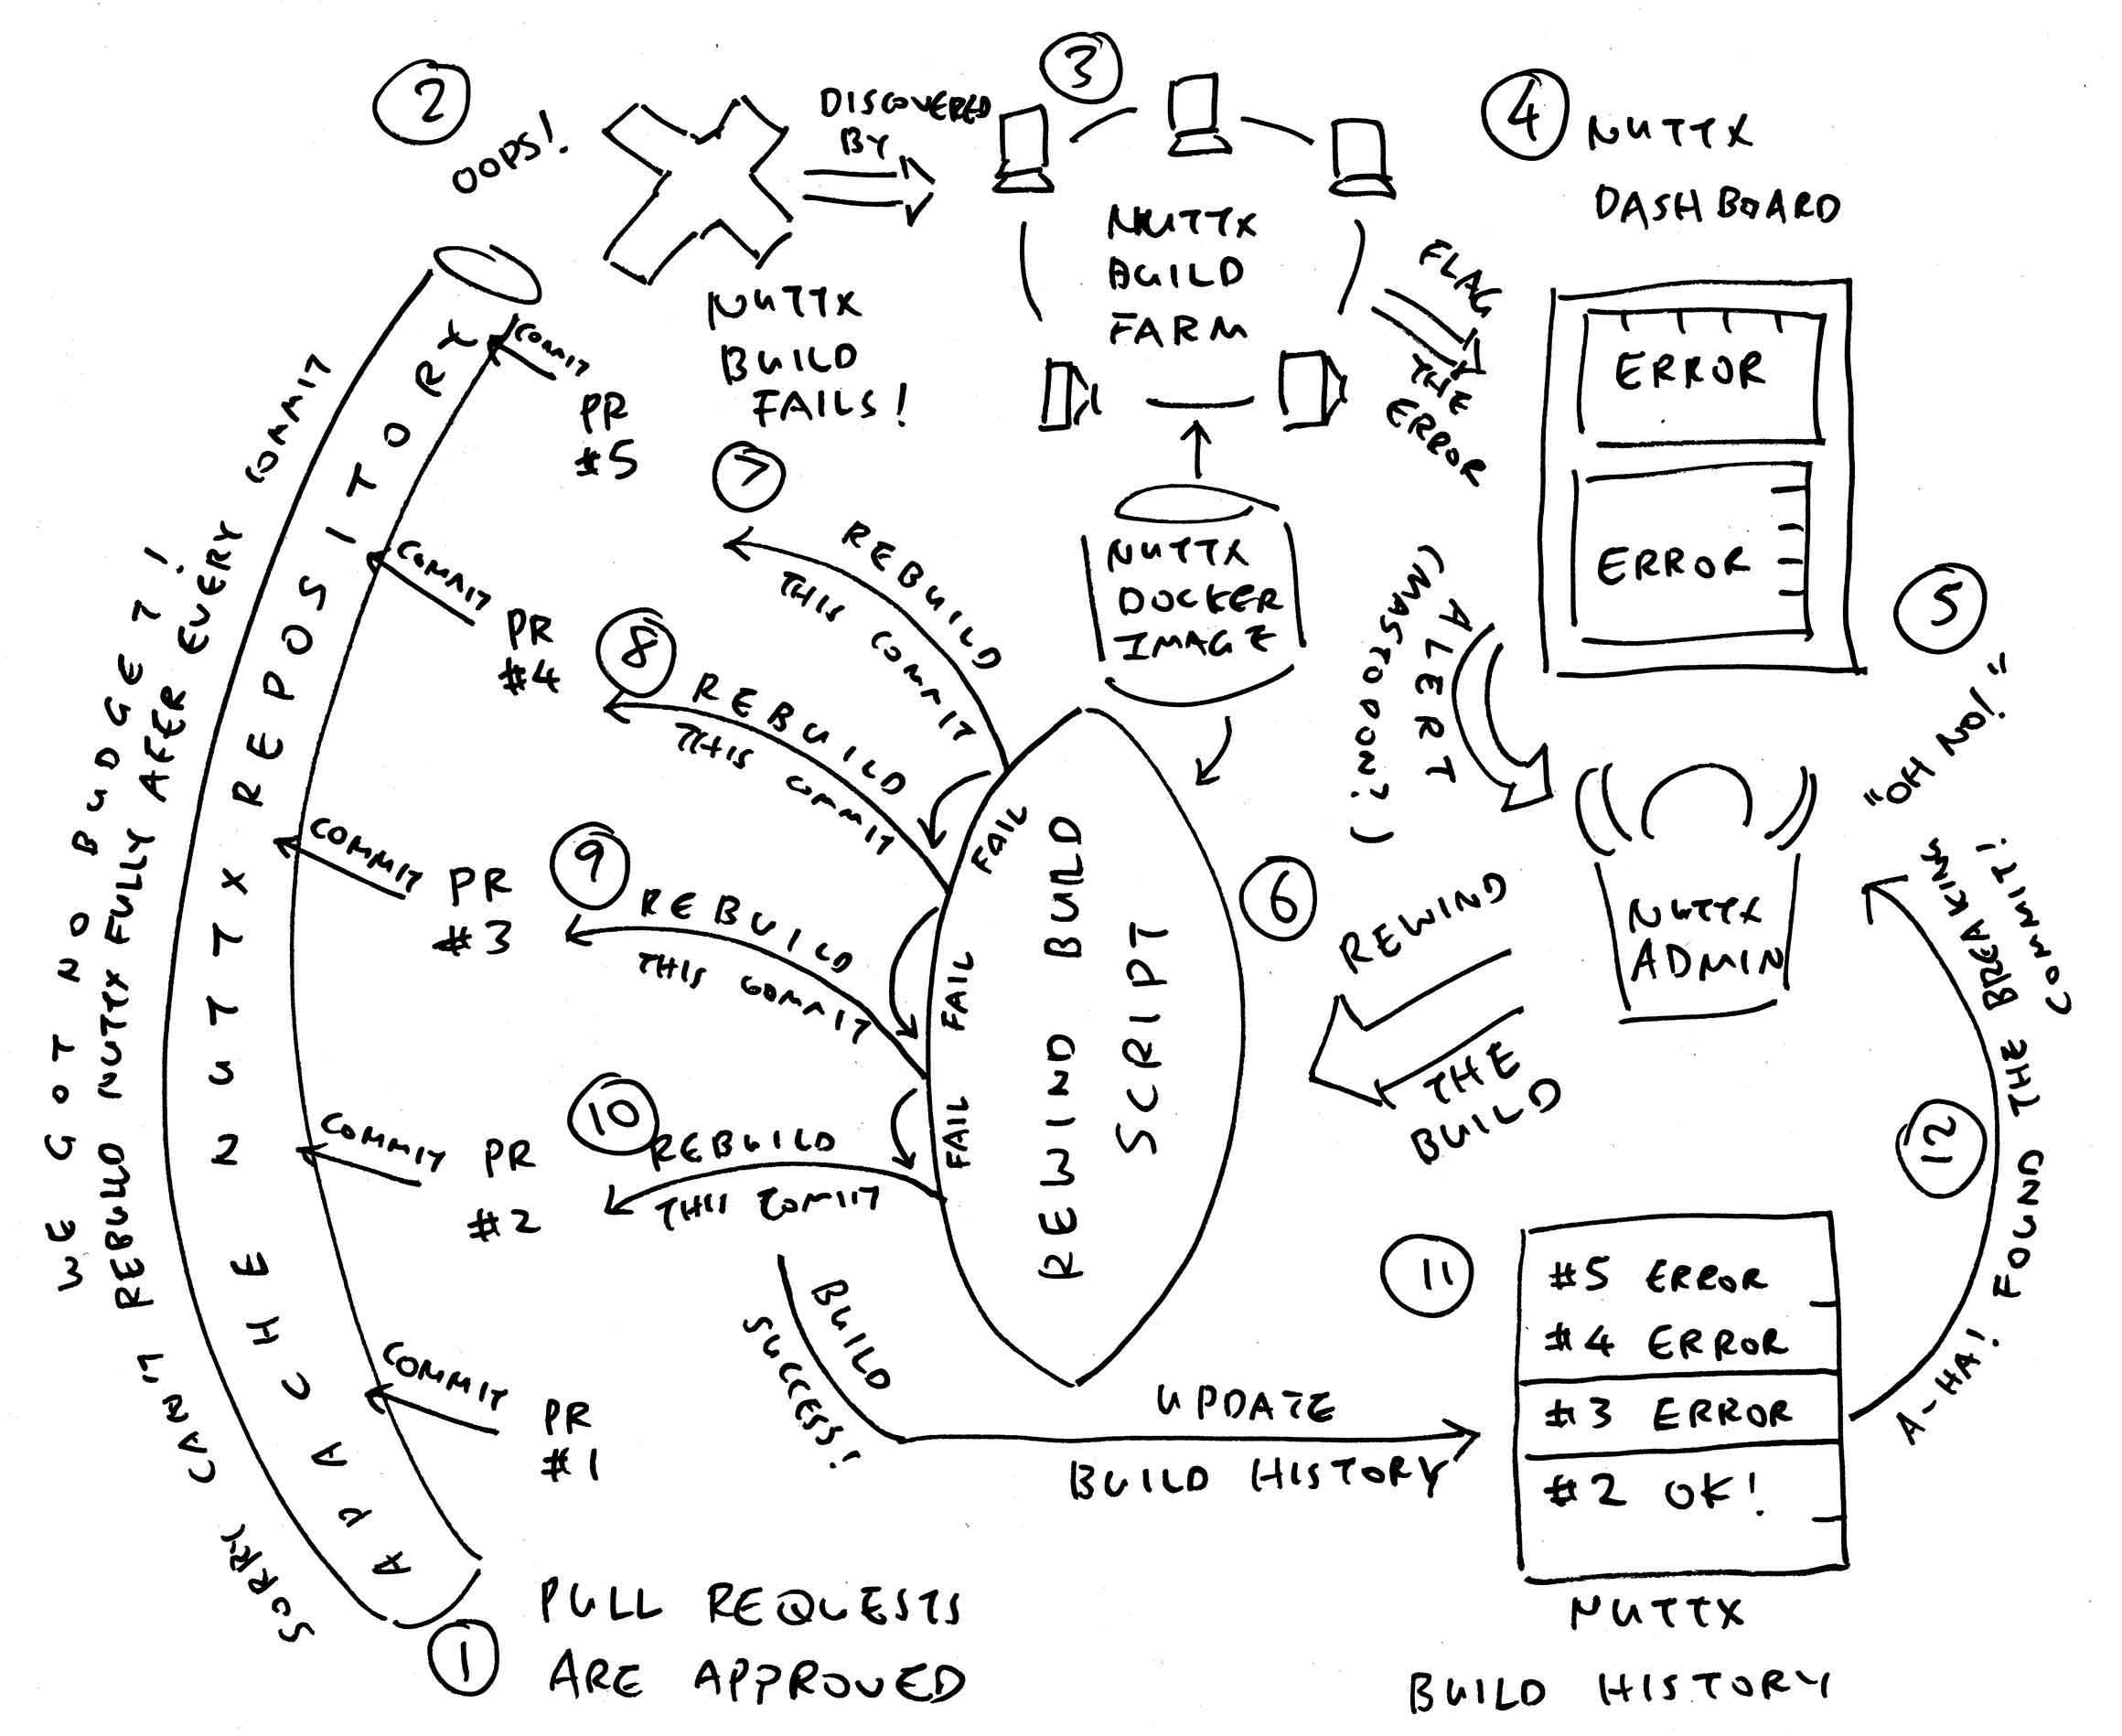 2
OOPS!
NUTTX
BUILD
FAILS!
DISCOVERED
BY
3
NUTTX
BUILD
FARM
FLAG
THE
ERROR
4
NUTTX
DASHBOARD
ERROR
ERROR
NUTTX
DOCKER
IMAGE
ALERT
(MASTODON?)
5
"OH NO!"
NUTTX
ADMIN
6
REWIND
THE
BUILD
REWIND BUILD
SCRIPT
7
REBUILD
THIS COMMIT
FAIL
8
REBUILD
THIS COMMIT
FAIL
9
REBUILD
THIS COMMIT
FAIL
10
REBUILD
THIS COMMIT
BUILD
SUCCESS!
UPDATE
BUILD HISTORY
11
#5 ERROR
#4 ERROR
#3 ERROR
#2 OK!
NUTTX
BUILD HISTORY
12
A-HA! FOUND THE BREAKING
COMMIT!
COMMIT
PR
#5
COMMIT
PR
#4
COMMIT
PR
#3
COMMIT
PR
#2
COMMIT
PR
#1
APACHE NUTTX REPOSITORY
SORRY CAN'T REBUILD NUTTX FULLY AFER EVERY COMMIT
WE GOT NO BUDGET!
1
PULL REQUESTS
ARE APPROVED